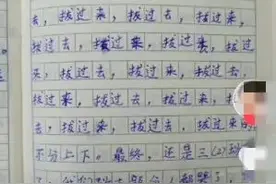 去，拔过来，拔过去，拔过来，
拔过去，拔过来，拔过去，拔过
去，拔过来，拔过去，拔过来，
拔过来，拔过去，拔过来，拔过
去，拔过来，拔过去，拔过来
不分上下。最终，还是三(2)班